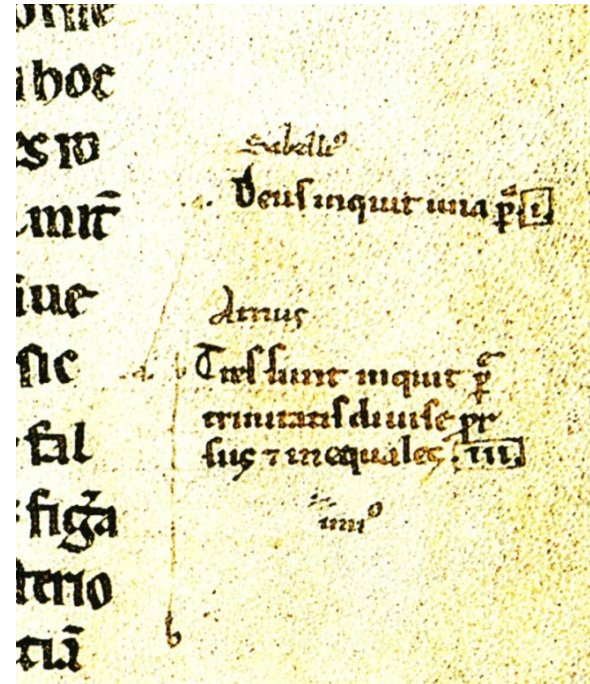 a hoc
es io
mit̄
iue
sic
fal
figa
terio
tiā
Sabelliꝰ
Deus inquit una p̄ .i.
Arrius
Tres sunt inquit p̄
trinitatis diuise pr
sus ⁊ inequales .iii.
iiiiº
b